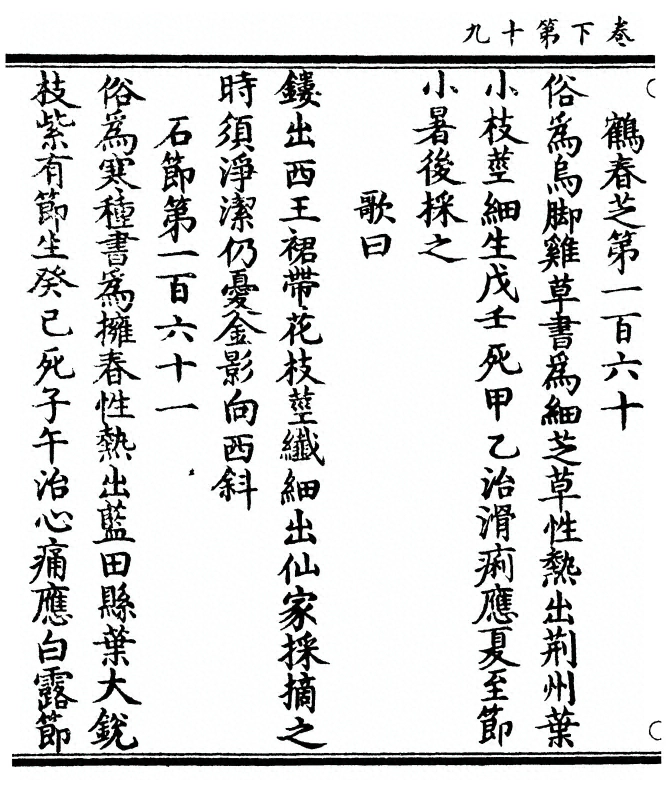 卷下第十九
鶴春芝第一百六十
俗為烏脚雞草書為細芝草性熱出荆州葉
小枝莖細生戊壬死甲乙治滑痢應夏至節
小暑後採之
歌曰
鏤出西王裙帶花枝莖纖細出仙家採摘之
時須淨潔仍憂金影向西斜
石節第一百六十一
俗為寒種書為擁春性熱出藍田縣葉大銳
枝紫有節生癸己死子午治心痛應白露節